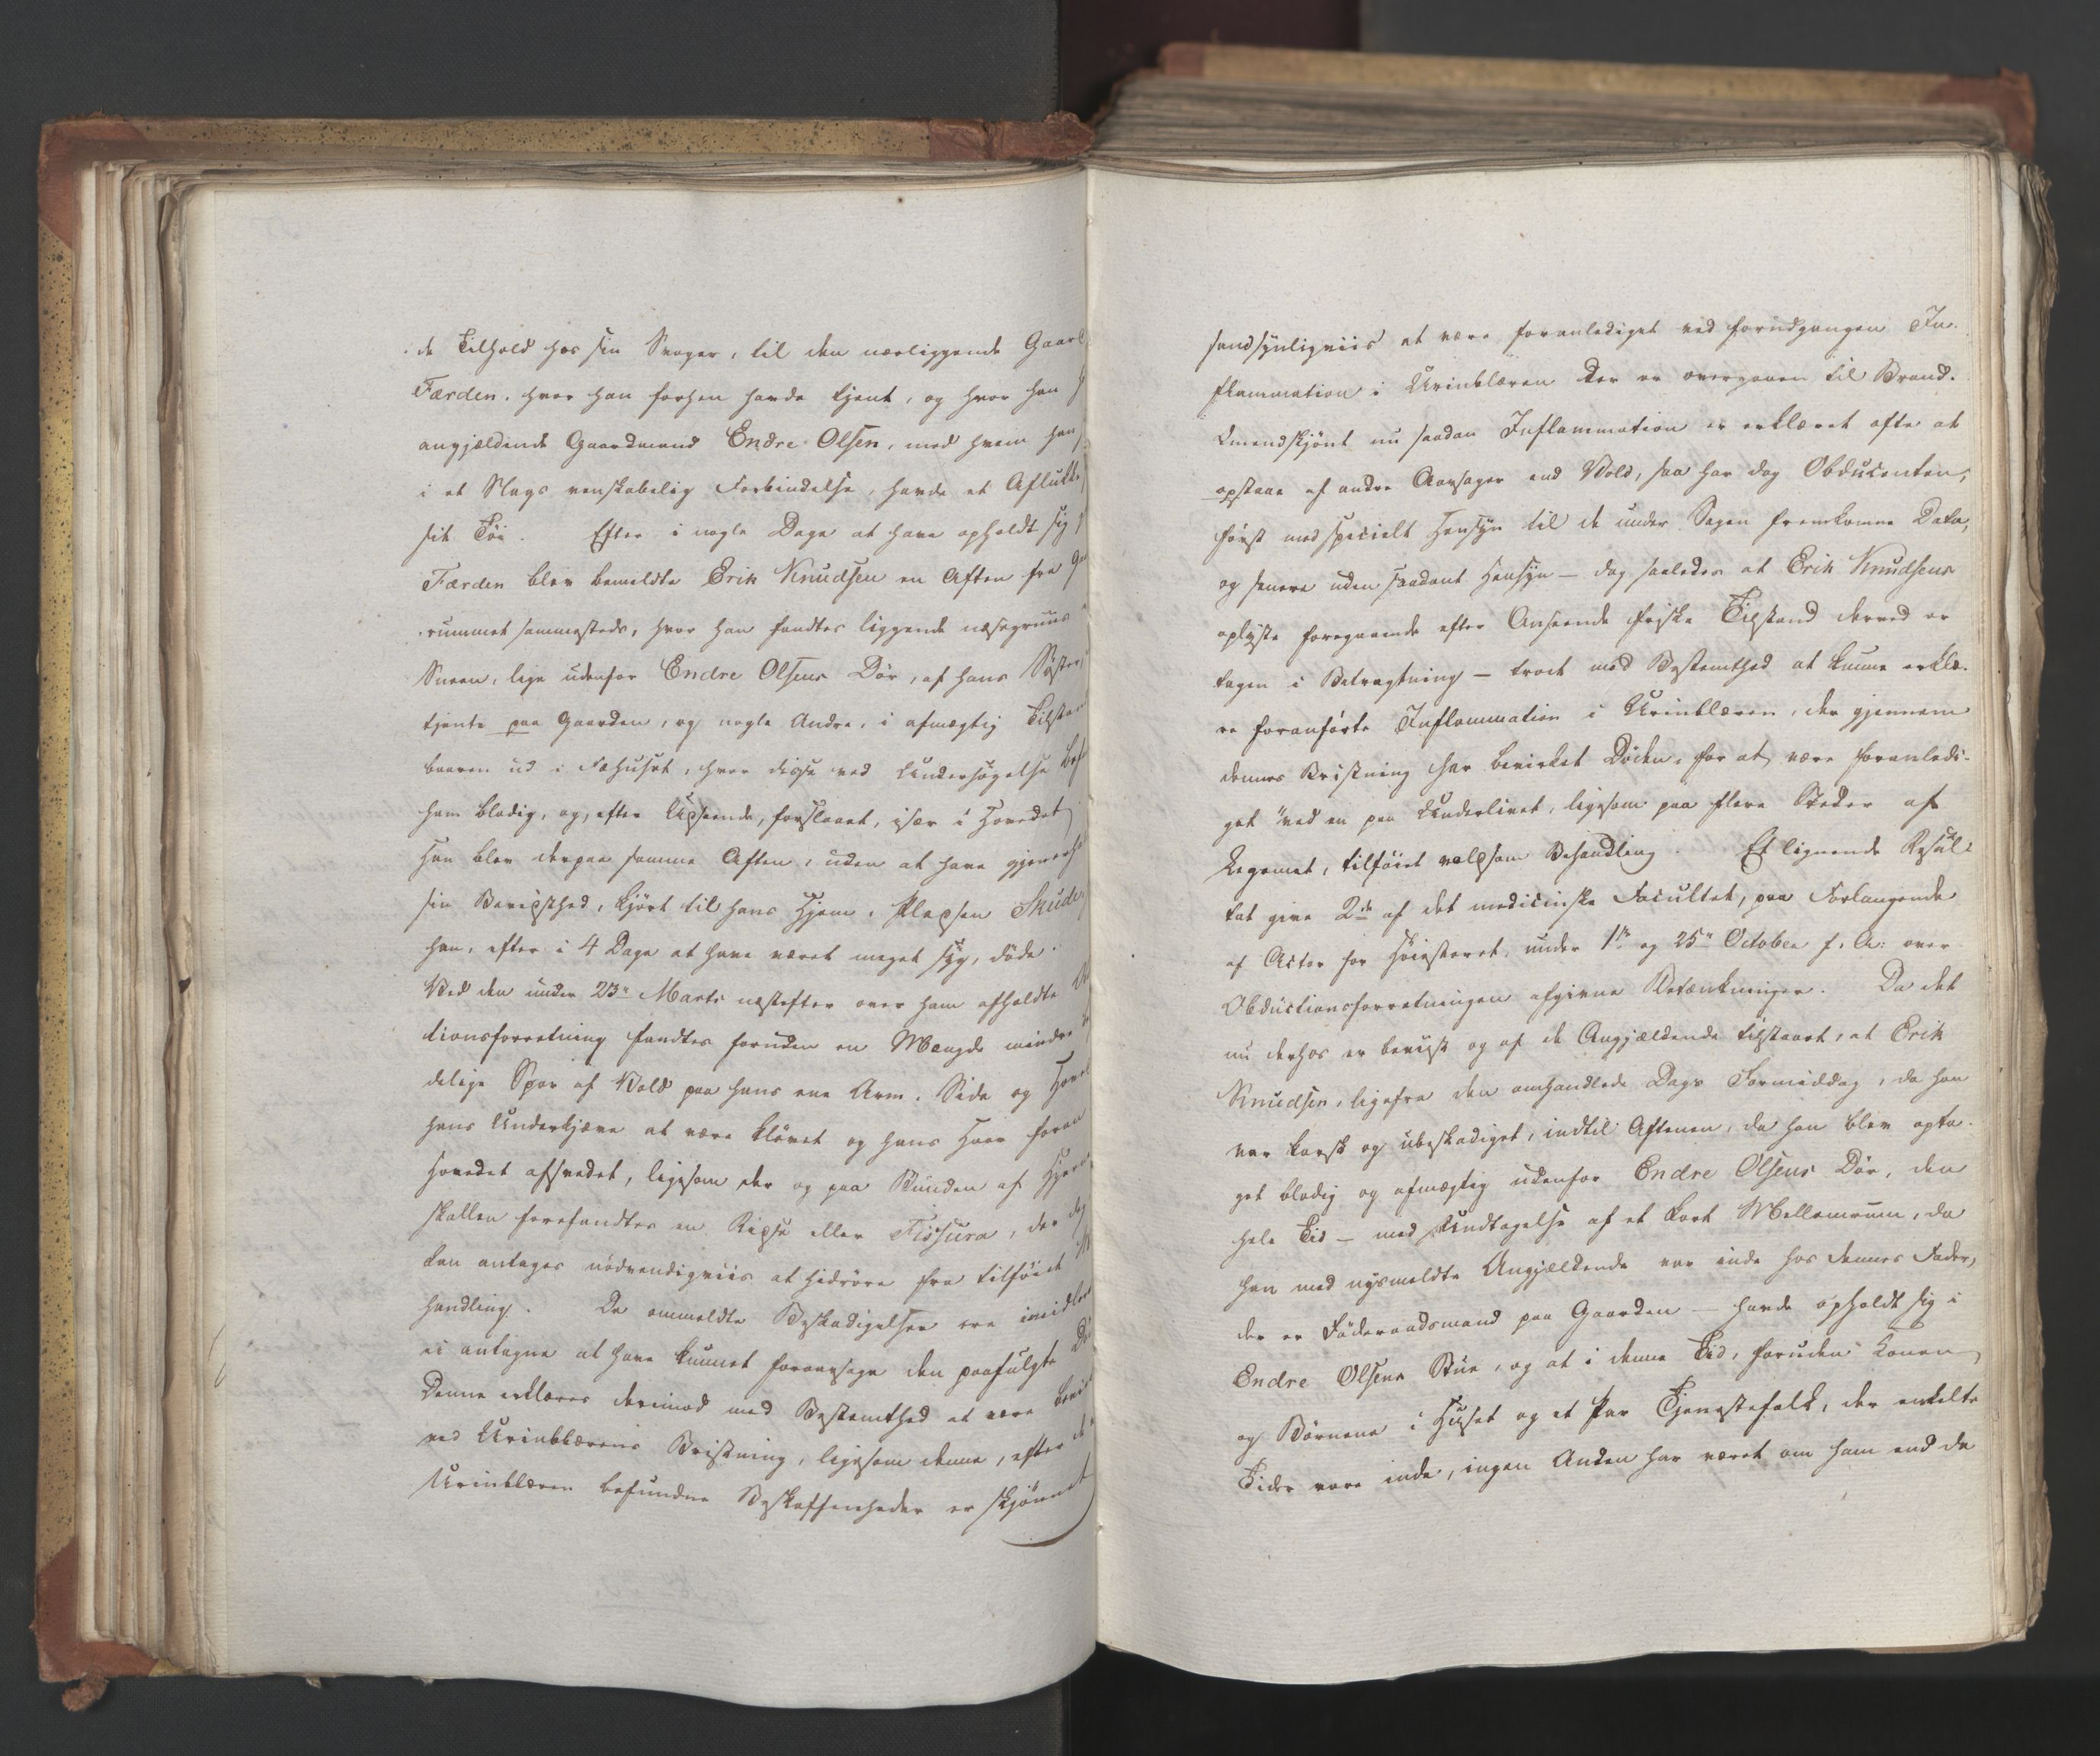 de Tilhold hos sin Svoger, til den nærliggende Gaard
Færden, hvor han forhen havde tjent, og hvor han
angjældende Gaardmand Endre Olsen, med hvem han
i et Slags venskabelig Forbindelse, havde et Aflukke
sit Tøi. Efter i nogle Dage at have opholdt sig
Færden blev bemeldte Erik Knudsen en Aften fra
rummet sammesteds, hvor han fandtes liggende næsegruus
Sneen, lige udenfor Endre Olsens Dør, af hans Søster,
tjente paa Gaarden, og nogle Andre, i afmægtig Tilstand
baaren ud i Fæhuset, hvor disse ved Undersøgelse
ham blodig, og, efter Udseende, forslaaet, især i Hovedet
Han blev derpaa samme Aften, uden at have
sin Bevidsthed, kjørt til hans Hjem, Pladsen Skude
han, efter i 4 Dage at have været meget syg, døde.
Ved den under 23de Marts næstefter over ham afholdte
tionsforretning fandtes foruden en Mængde mindre
delige Spor af Vold paa hans ene Arm, Side og
hans Underkjæve at være kløvet og hans Haar foran
Hovedet afsvedet, ligesom der og paa Bunden af
skallen forefandtes en Ridse eller Fissura, der
kan antages nødvendigviis at hidrøre fra tilføiet
handling. De ommeldte Beskadigelser ere
ei antagne at have kunnet foraarsage den paafulgte
Denne erklæres derimod med Bestemthed at være
ved Urinblærens Bristning, ligesom denne, efter de
Urinblæren befundne Beskaffenheder er skjønnet
sandsynligviis at være foranlediget ved forudgangen In-
flammation i Urinblæren der er overgaaen til Brand.
Omendskjønt nu saadan Inflammation er erklæret ofte at
opstaae af andre Aarsager end Vold, saa har dog Obducenten,
først med specielt Hensyn til de under Sagen fremkomne Data,
og senere uden saadant Hensyn – dog saaledes at Erik Knudsens
oplyste foregaaende efter Anseende friske Tilstand derved er
tagen i Betragtning – troet med Bestemthed at kunne erklæ-
re foranførte Inflammation i Urinblæren, der gjennem
dennes Bristning har bevirket Døden, for at være foranledi-
get "ved en paa Underlivet, ligesom paa flere Steder af
Legemet, tilføiet voldsom Behandling. Et lignende Resul-
tat give 2de af det medicinske Facultet, paa Forlangende
af Actor for Høiesteret, under 1ste og 25de October f. A. over
Obductionsforretningen afgivne Betænkninger. Da det
nu derhos er beviist og af de Angjældende tilstaaet, at Erik
Knudsen, ligefra den omhandlede Dags Formiddag, da han
var karsk og ubeskadiget, indtil Aftenen, da han blev opta-
get blodig og afmægtig udenfor Endre Olsens Dør, den
hele Tid – med Undtagelse af et kort Mellemrum, da
han med nysmeldte Angjældende var inde hos dennes Fader,
der er Føderaadsmand paa Gaarden – havde opholdt sig i
Endre Olsens Stue, og at i denne Tid, foruden Konen
og Børnene i Huset og et Par Tjenestefolk, der enkelte
Tider vare inde, ingen Anden har været om ham end de